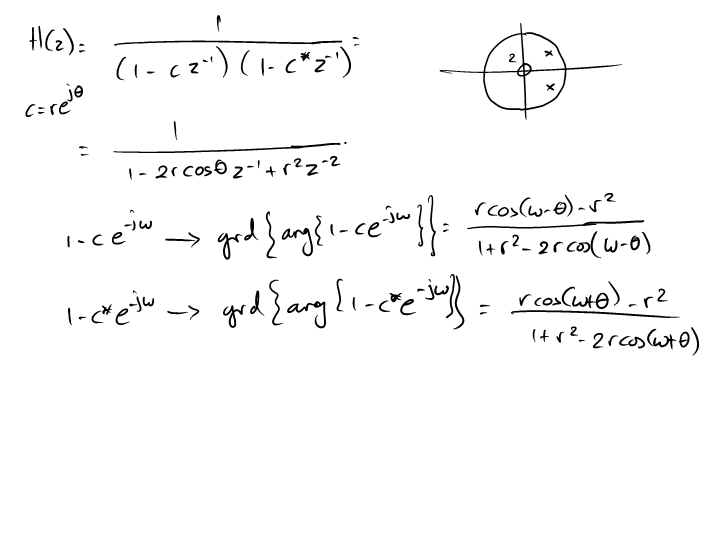 H(z) = 1 / ((1 - c z^-1)(1 - c* z^-1)) =
2
c = re^jθ
= 1 / (1 - 2r cosθ z^-1 + r^2 z^-2).
1 - c e^-jω → grd{arg{1 - ce^-jω}} = (r cos(ω-θ) - r^2) / (1 + r^2 - 2r cos(ω-θ))
1 - c* e^-jω → grd{arg{1 - c* e^-jω}} = (r cos(ω+θ) - r^2) / (1 + r^2 - 2r cos(ω+θ))